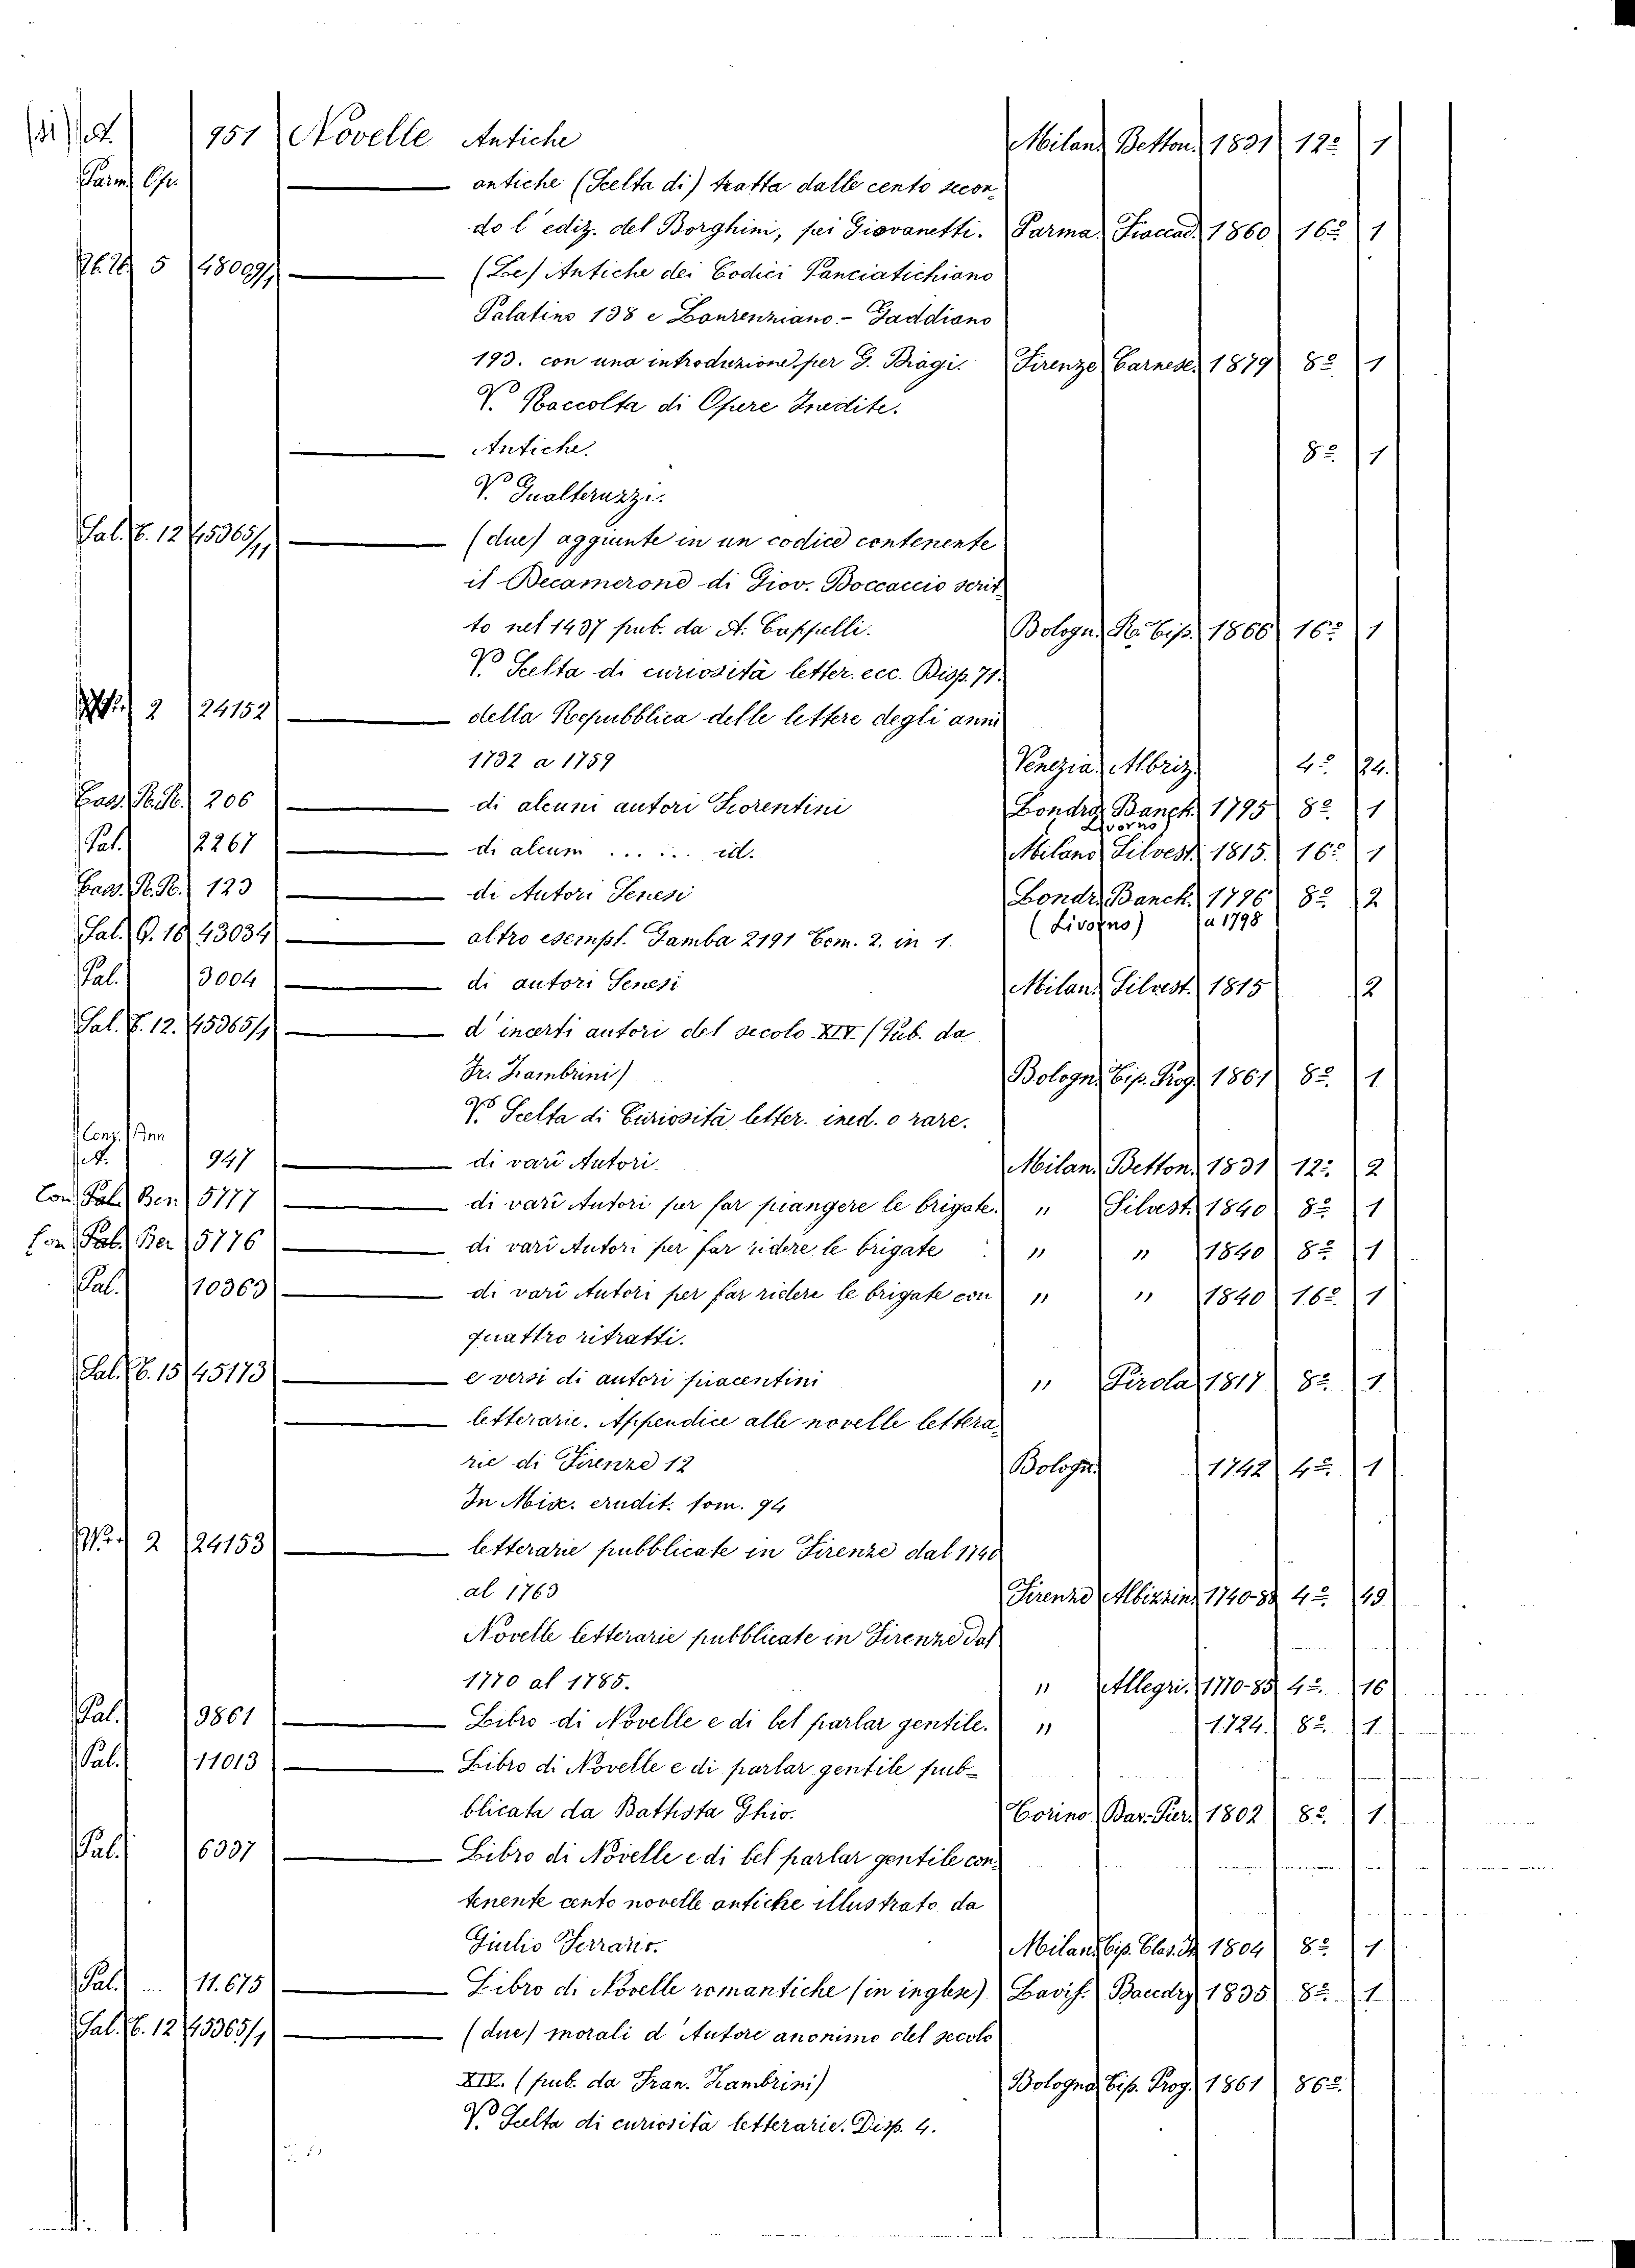 951 Novelle Antiche Milan. Betton. 1831 12º 1
Parm. antiche (Scelta di) tratta dalle cento secon-
do l'ediz. del Borghini, pei Giovanetti. Parma. Fiaccad. 1860 16º 1
5 48009/1 (Le) Antiche dei Codici Panciatichiano
Palatino 138 e Laurenziano-Gaddiano
193. con una introduzione per G. Biagi. Firenze Carnese. 1879 8º 1
V. Raccolta di Opere Inedite.
Antiche. 8º 1
V. Gualteruzzi.
Sal. E. 12 45365/11 (due) aggiunte in un codice contenente
il Decamerone di Giov. Boccaccio scrit-
to nel 1437 pub. da A. Cappelli. Bologn. R. Tip. 1866 16º 1
V. Scelta di curiosità letter. ecc. Disp. 71.
2 24152 della Repubblica delle lettere degli anni
1732 a 1759 Venezia. Albriz. 4º 24.
Cass. R. R. 206 di alcuni autori Fiorentini Londra Banck. 1795 8º 1
Livorno
Pal. 2267 di alcuni ...... id. Milano Silvest. 1815. 16º 1
Cass. R. R. 123 di Autori Senesi Londr. Banck. 1796 8º 2
(Livorno) a 1798
Sal. G. 16 43034 altro esempl. Gamba 2191 Tom. 2. in 1.
Pal. 3004 di autori Senesi Milan. Silvest. 1815 2
Sal. E. 12. 45365/1 d'incerti autori del secolo XIV (Pub. da
Fr. Zambrini) Bologn. Tip. Prog. 1861 8º 1
V. Scelta di Curiosità letter. ined. o rare.
947 di vari Autori. Milan. Betton. 1831 12º 2
Con. Pal. Ber. 5777 di vari Autori per far piangere le brigate. " Silvest. 1840 8º 1
Con. Pal. Ber 5776 di vari Autori per far ridere le brigate " " 1840 8º 1
Pal. 10363 di vari Autori per far ridere le brigate con " " 1840 16º 1
quattro ritratti.
Sal. E. 15 45173 e versi di autori piacentini " Pirola 1817 8º 1
letterarie. Appendice alle novelle lettera-
rie di Firenze 12 Bologn. 1742 4º 1
In Misc. erudit. tom. 94
2 24153 letterarie pubblicate in Firenze dal 1740
al 1763 Firenze Albizzin. 1740-88 4º 49.
Novelle letterarie pubblicate in Firenze dal
1770 al 1785. " Allegri. 1770-85 4º 16
Pal. 9861 Libro di Novelle e di bel parlar gentile. " 1724. 8º 1
Pal. 11013 Libro di Novelle e di parlar gentile pub-
blicata da Battista Ghio. Torino Bar. Pier. 1802 8º 1.
Pal. 6337 Libro di Novelle e di bel parlar gentile con-
tenente cento novelle antiche illustrato da
Giulio Ferrario. Milan. Tip. Clas. It. 1804 8º 1
Pal. 11.675 Libro di Novelle romantiche (in inglese) Bavis. Baudry 1835 8º 1
Sal. E. 12 45365/1 (due) morali d'Autore anonimo del secolo
XIV. (pub. da Fran. Zambrini) Bologna Tip. Prog. 1861 8º
V. Scelta di curiosità letterarie. Disp. 4.